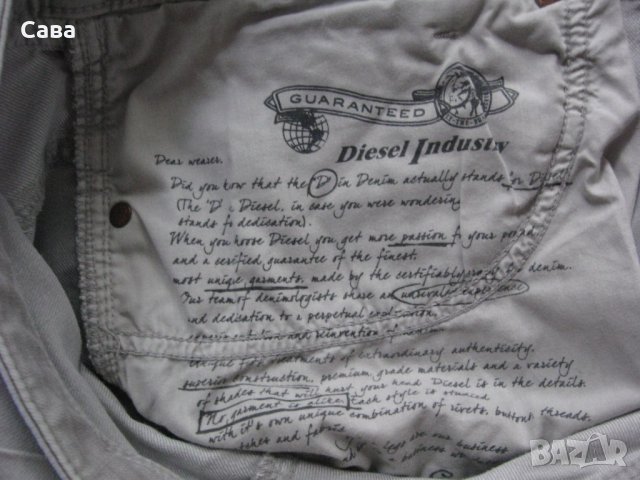 Caba
GUARANTEED
Diesel Industry
Dear wearer.
Did you know that the "D" in Denim actually stands for Diesel
(The "D" Diesel, in case you were wondering
stands fo dedication).
When you hoose Diesel you get more passion fo your pound
and a cerified guarantee of the finest.
most unique garments, made by the certifiably crazy denim.
Our team of denimologists share an unrivaled experience
and dedication to a perpetual explosion,
experimentation and reinvention of denim.
treatments of extraordinary authenticity.
superior construction, premium grade materials and a variety
of shades that will hurt your head Diesel is in the details.
No garment is alike. Each style is stunned
with it's own unique combination of rivets, buttons threads.
and fabrics
are our business
business
bazar